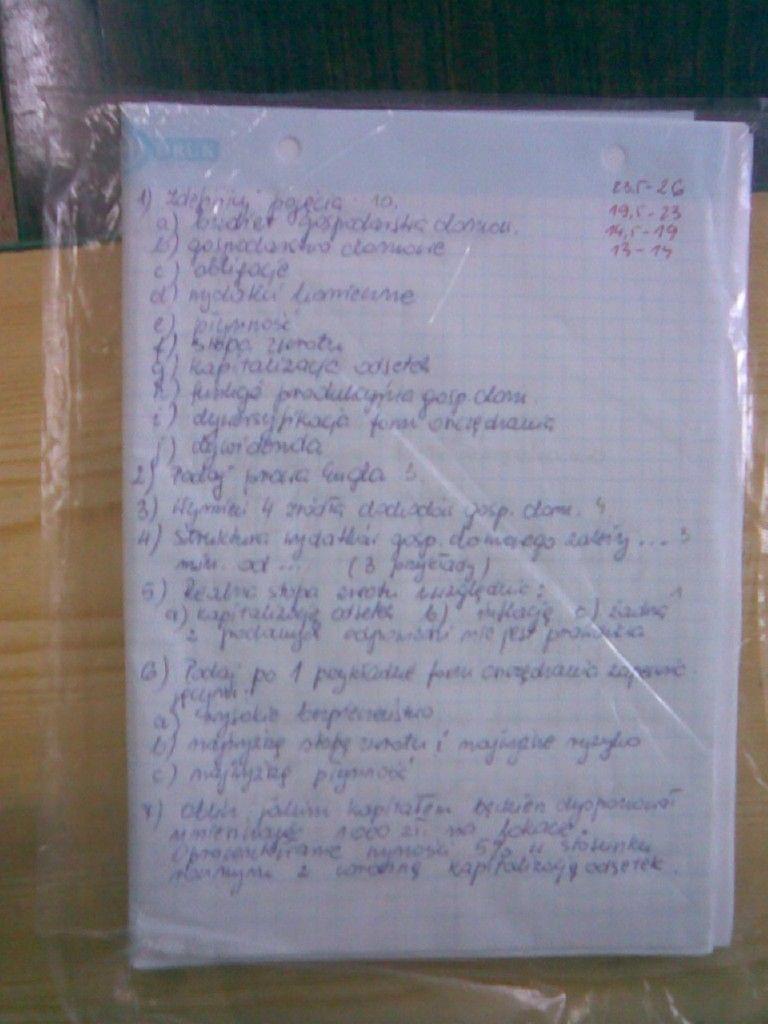 DRUK
23,5-26
19,5-23
14,5-19
13-14
1) Zdefiniuj pojęcia 10.
a) budżet gospodarstwa domow.
b) gospodarstwo domowe
c) obligacje
d) wydatki
e) płynność
f) stopa zwrotu
g) kapitalizacja odsetek
h) funkcja produkcyjna gosp. dom.
i) dywersyfikacja form oszczędzania
j) dywidenda
2) Podaj prawa Engla 3.
3) Wymień 4 źródła dochodów gosp. dom. 4
4) Struktura wydatków gosp. domowego zależy ... 3
min. od ... (3 przykłady)
5) Realna stopa zwrotu uwzględnia: 1
a) kapitalizację odsetek b) inflację c) żadna
z podanych odpowiedzi nie jest prawdziwa
6) Podaj po 1 przykładzie form oszczędzania
a) wysokie bezpieczeństwo
b) najwyższą stopę zwrotu i ryzyko
c) najwyższą płynność
7) Oblicz jakim kapitałem będziesz dysponował
1000 zł. na lokacie.
Oprocentowanie wynosi 5% w stosunku
rocznym z kapitalizacją odsetek.